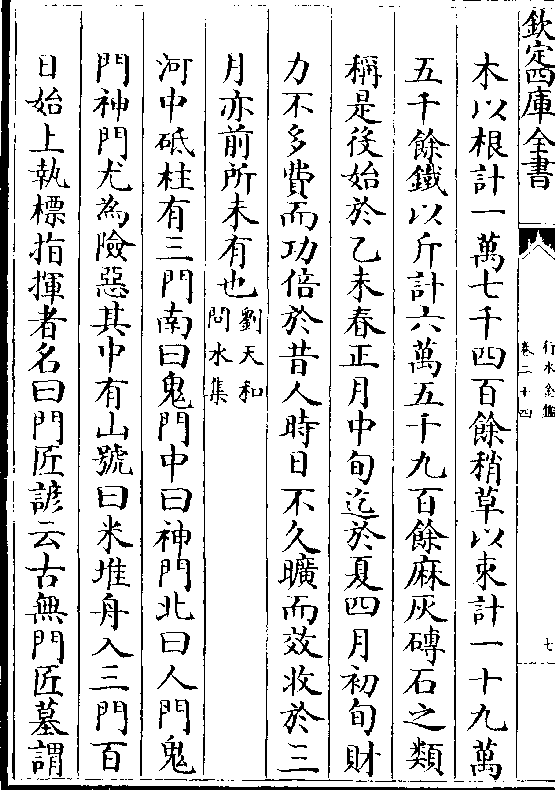 欽定四庫全書
行水金鑑
卷二十四
七
木以根計一萬七千四百餘稍草以束計一十九萬
五千餘鐵以斤計六萬五千九百餘麻灰磚石之類
稱是後始於乙未春正月中旬迄於夏四月初旬財
力不多費而功倍於昔人時日不久曠而效收於三
月亦前所未有也劉天和
問水集
河中砥柱有三門南曰鬼門中曰神門北曰人門鬼
門神門尤為險惡其中有山號曰米堆舟入三門百
日始上執標指揮者名曰門匠諺云古無門匠墓謂